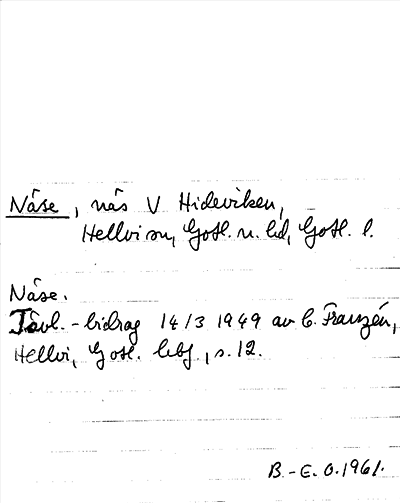 Näse, näs V Hideviken,
Hellvi sn, Gotl. n. hd, Gotl. l.
Näse.
Tävl.-bidrag 14/3 1949 av C. Franzén,
Hellvi, Gotl. lbf, s. 12.
B.-E. O. 1961.